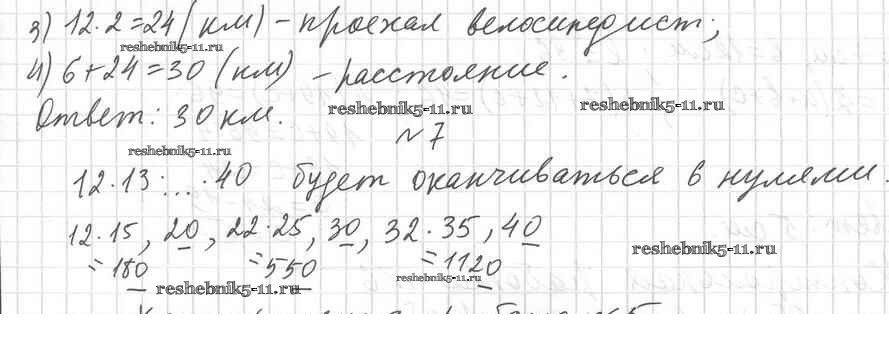 3) 12·2=24 (км) – проехал велосипедист;
reshebnik5-11.ru
4) 6+24=30 (км) – расстояние.
reshebnik5-11.ru reshebnik5-11.ru
Ответ: 30 км.
reshebnik5-11.ru
№7
12·13·...·40 будет оканчиваться 6 нулями.
12·15, 20, 22·25, 30, 32·35, 40
reshebnik5-11.ru
=180 =550 =1120
reshebnik5-11.ru
reshebnik5-11.ru